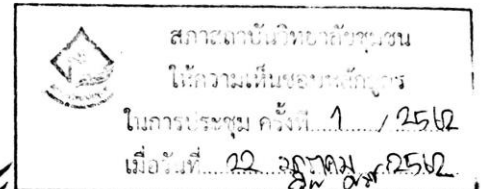 สภาสถาบันวิทยาลัยชุมชน
ให้ความเห็นชอบหลักสูตร
ในการประชุม ครั้งที่ 1 / 2562
เมื่อวันที่ 22 มกราคม 2562